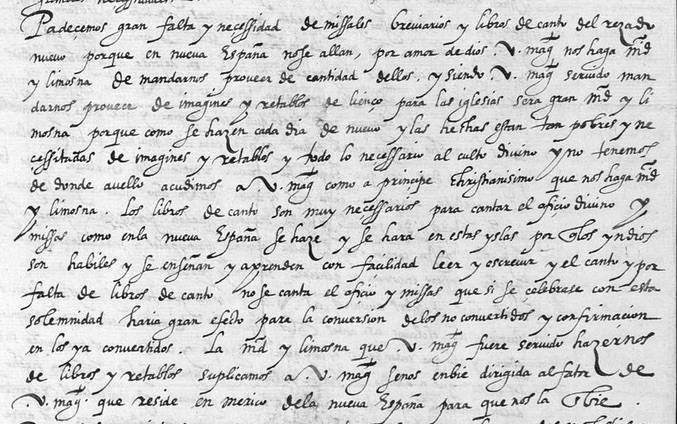 Padecemos gran falta y necessidad de missales breviarios y libros de canto del rezado
nuevo porque en nueva España nose allan, por amor de dios .V. mag̃ nos haga m̃d
y limosna de mandarnos proveer de cantidad dellos, y siendo .V. mag̃ servido man
darnos proveer de imagines y retablos de lienço para las iglesias sera gran m̃d y li
mosna porque como se hazen cada dia de nuevo y las hechas estan tan pobres y ne
cessitadas de imagines y retablos y todo lo necessario al culto divino y no tenemos
de donde avello acudimos a .V. mag̃ como a principe christianisimo que nos haga m̃d
y limosna. Los libros de canto son muy necessarios para cantar el oficio divino y
missas como enla nueva España se haze y se hara en estas yslas por q̃ los yndios
son habiles y se enseñan y aprenden con facilidad leer y escrevir y el canto y por
falta de libros de canto no se canta el oficio y missas que si se celebrase con esta
solemnidad haria gran efecto para la conversion delos no convertidos y confirmacion
en los ya convertidos. La m̃d y limosna que .V. mag̃ fuere servido hazernos
de libros y retablos suplicamos a .V. mag̃ senos enbie dirigida al fator de
.V. mag̃. que reside en mexico dela nueva España para que nos la